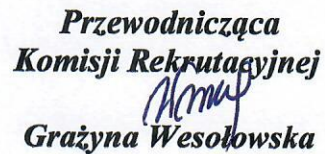 Przewodnicząca
Komisji Rekrutacyjnej
Grażyna Wesołowska